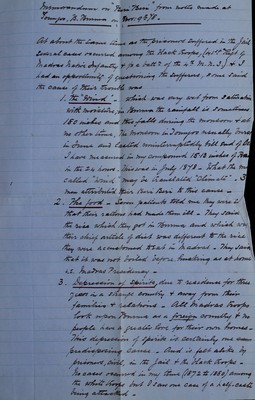 Memorandum on "Beri Beri" from notes made at
Tounjoo, B. Burma in Nov. 1878.
At about the same time as the prisoners suffered in the Jail
several cases occurred among the Black troops, (41st Regt of
Madras Native Infantry & had
an opportunity of questioning the sufferers, some said
the cause of their trouble was
1. the "Wind" - which was very wet from saturation
with moisture, in Burma the rainfall is sometimes
180 inches and this falls during the monsoon & at
no other time, the monsoon in Tounjoo usually breaks
in June and lasted uninterruptedly till end of
I have measured in my compound 15.13 inches of Rain
in the 24 hours. This was in July 1878 - What the men
called "wind" may be translated "Climate" - 3
men attributed their Beri Beri to this cause -
2. The food - Seven patients told me they were
that their rations had made them ill - They said
the rice which they got in Burma and which was
their chief article of diet was different to the rice
they were accustomed to eat in Madras. They said
that it was not boiled before husking as at home
i.e. Madras Presidency -
3. Depression of spirits, due to residence for three
years in a strange country & away from their
families & relations - All Madras troops
look upon Burma as a foreign country & no
people have a greater love for their own homes -
This depression of spirits is certainly one main
predisposing cause - And is felt alike by
prisoner, and, in the Jail & the Black troops -
No cases occurred in my time (1872 to 1880) among
the white troops but I saw one case of a half-caste
being attacked -